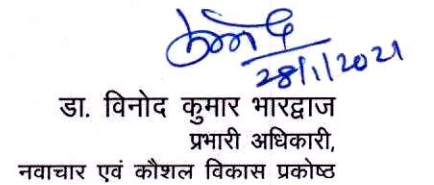 28/1/2021
डा. विनोद कुमार भारद्वाज
प्रभारी अधिकारी,
नवाचार एवं कौशल विकास प्रकोष्ठ